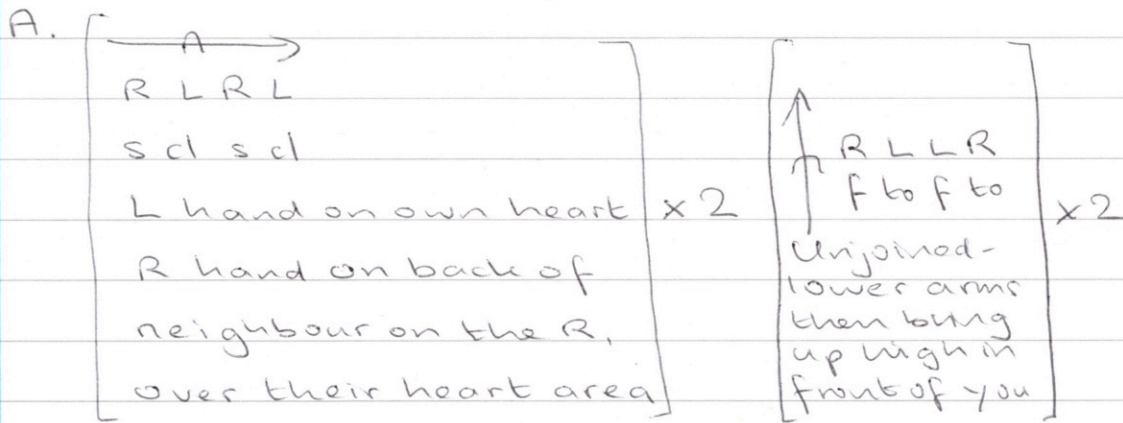 A.
R L R L
s cl s cl
L hand on own heart
R hand on back of
neighbour on the R,
over their heart area
x 2
R L L R
f to f to
Unjoined-
lower arms
then bring
up high in
front of you
x 2